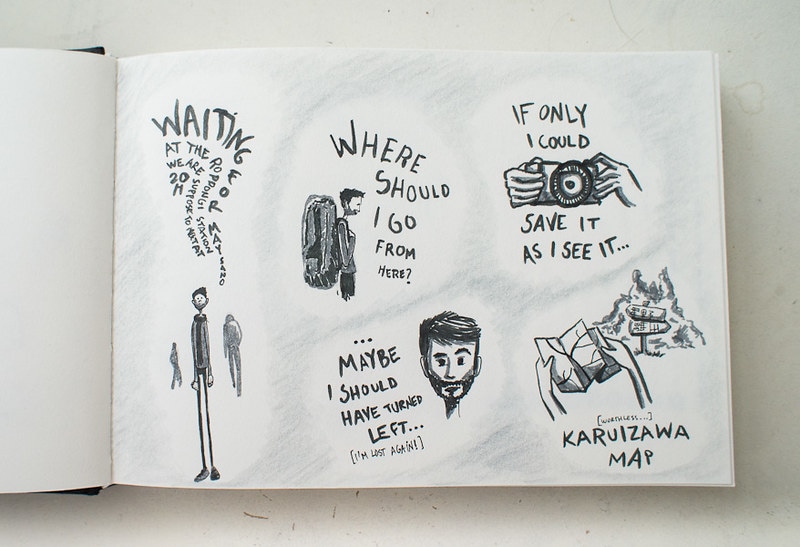 WAITING FOR MAYSANO
AT THE ROPPONGI STATION
WE ARE SUPPOSE TO
20H
WHERE
SHOULD
I GO
FROM
HERE?
IF ONLY
I COULD
SAVE IT
AS I SEE IT...
...
MAYBE
I SHOULD
HAVE TURNED
LEFT...
[I'M LOST AGAIN!]
[WORTHLESS...]
KARUIZAWA
MAP